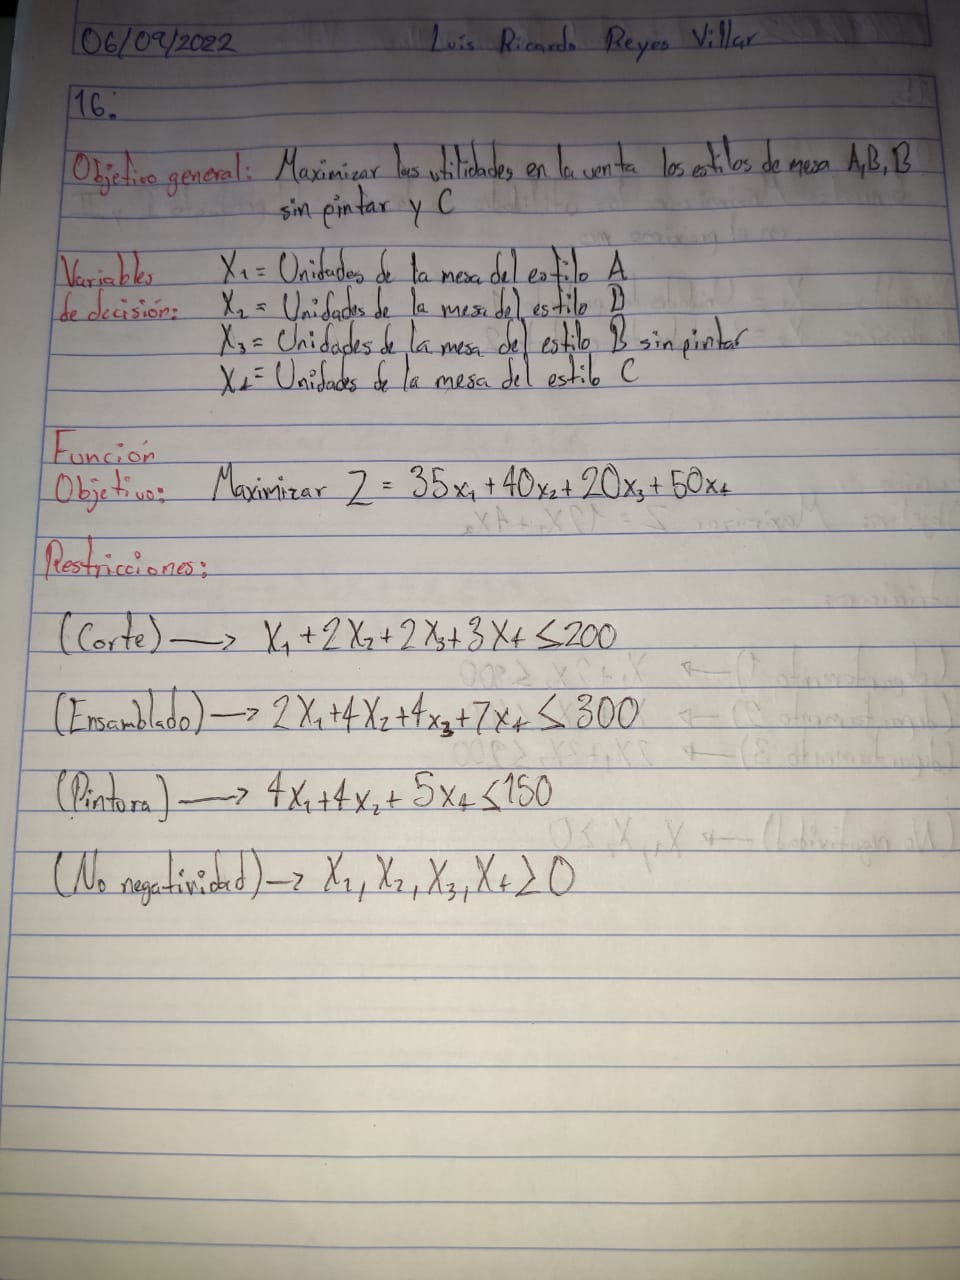 06/09/2022 Luis Ricardo Reyes Villar
16.
Objetivo general: Maximizar las utilidades en la venta los estilos de mesa A, B, B
sin pintar y C
Variables X₁ = Unidades de la mesa del estilo A
de decisión: X₂ = Unidades de la mesa del estilo B
X₃ = Unidades de la mesa del estilo B sin pintar
X₄ = Unidades de la mesa del estilo C
Función
Objetivo: Maximizar Z = 35x₁ + 40x₂ + 20x₃ + 50x₄
Restricciones:
(Corte) → X₁ + 2X₂ + 2X₃ + 3X₄ ≤ 200
(Ensamblado) → 2X₁ + 4X₂ + 4x₃ + 7x₄ ≤ 300
(Pintura) → 4x₁ + 4x₂ + 5x₄ ≤ 150
(No negatividad) → X₁, X₂, X₃, X₄ ≥ 0